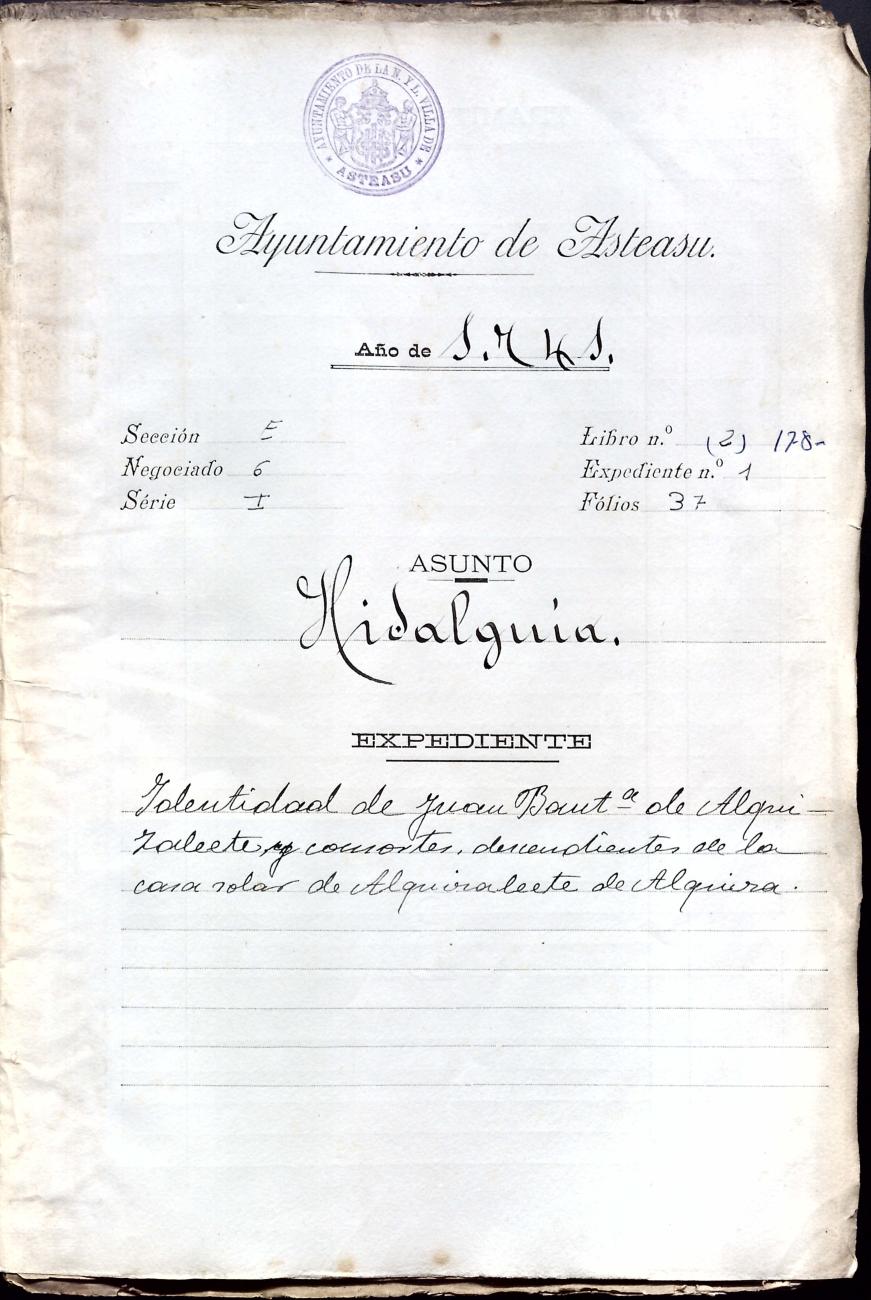 AYUNTAMIENTO DE LA N. Y L. VILLA DE
* ASTEASU *
Ayuntamiento de Asteasu.
Año de 1.741.
Sección E
Negociado 6
Série I
Libro n.º (2) 178-
Expediente n.º 1
Fólios 37
ASUNTO
Hidalguia.
EXPEDIENTE
Identidad de Juan Bautª de Alqui-
zaleete y consortes, descendientes de la
casa solar de Alquizaleete de Alquiza.